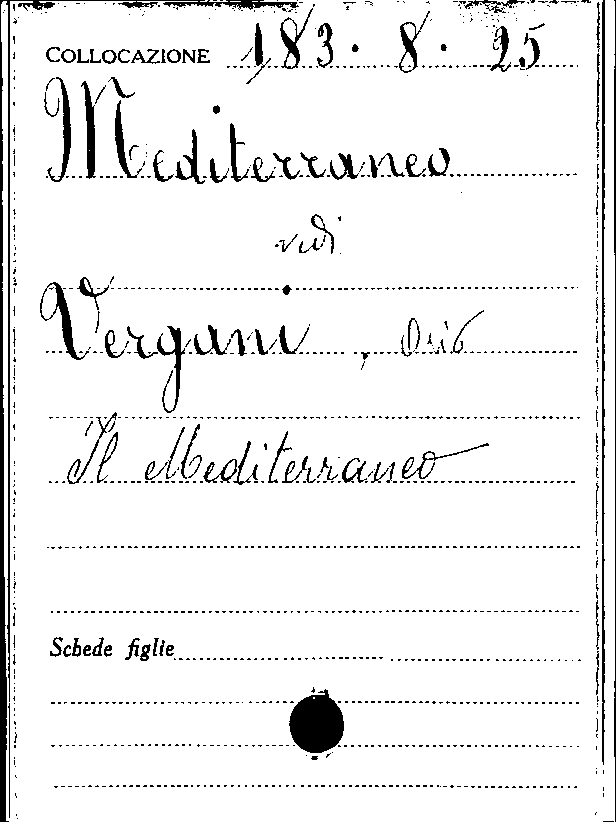 COLLOCAZIONE 183. 8. 25
Mediterraneo
vedi
Vergani, Orio
Il Mediterraneo
Schede figlie